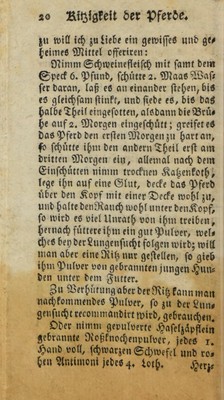 20 Ritzigkeit der Pferde.
zu will ich zu Liebe ein gewisses und ge-
heimes Mittel offeriren:
Nimm Schweinefleisch mit samt dem
Speck 6. Pfund, schütte 2. Maas Was-
ser daran, laß es an einander stehen, bis
es gleichsam stinkt, und siede es, bis das
halbe Theil eingesotten, alsdann die Brü-
he auf 2. Morgen eingeschütt; greifet es
das Pferd den ersten Morgen zu hart an,
so schütte ihm den andern Theil erst am
dritten Morgen ein, allemal nach dem
Einschütten nimm trocknen Katzenkoth,
lege ihn auf eine Glut, decke das Pferd
über den Kopf mit einer Decke wohl zu,
und halte den Rauch wohl unter den Kopf,
so wird es viel Unrath von ihm treiben,
hernach füttere ihm ein gut Pulver, wel-
ches bey der Lungensucht folgen wird; will
man aber eine Ritz nur gestellen, so gieb
ihm Pulver von gebrannten jungen Hun-
den unter dem Futter.
Zu Verhütung aber der Ritz kann man
nachkommendes Pulver, so zu der Lun-
gensucht recommandirt wird, gebrauchen.
Oder nimm gepulverte Haselzäpflein
gebrannte Roßknochenpulver, jedes 1.
Hand voll, schwarzen Schwefel und ro-
hen Antimoni jedes 4. Loth. Herz-